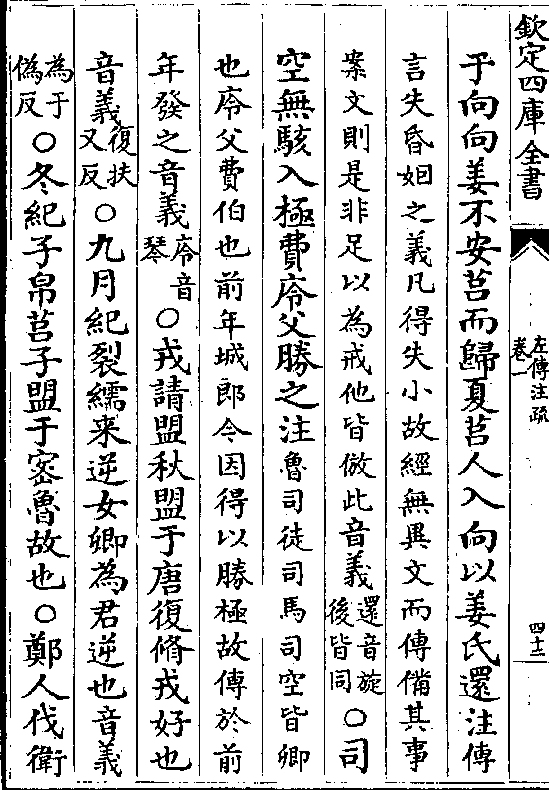 欽定四庫全書
左傳注疏
卷一
四十二
于向向姜不安莒而歸夏莒人入向以姜氏還注傳
言失昏姻之義凡得失小故經無異文而傳備其事
案文則是非足以為戒他皆倣此音義還音旋後皆同〇司
空無駭入極費庈父勝之注魯司徒司馬司空皆卿
也庈父費伯也前年城郎今因得以勝極故傳於前
年發之音義庈音琴〇戎請盟秋盟于唐復脩戎好也
音義復扶又反〇九月紀裂繻来逆女卿為君逆也音義
為于偽反〇冬紀子帛莒子盟于密魯故也〇鄭人伐衛